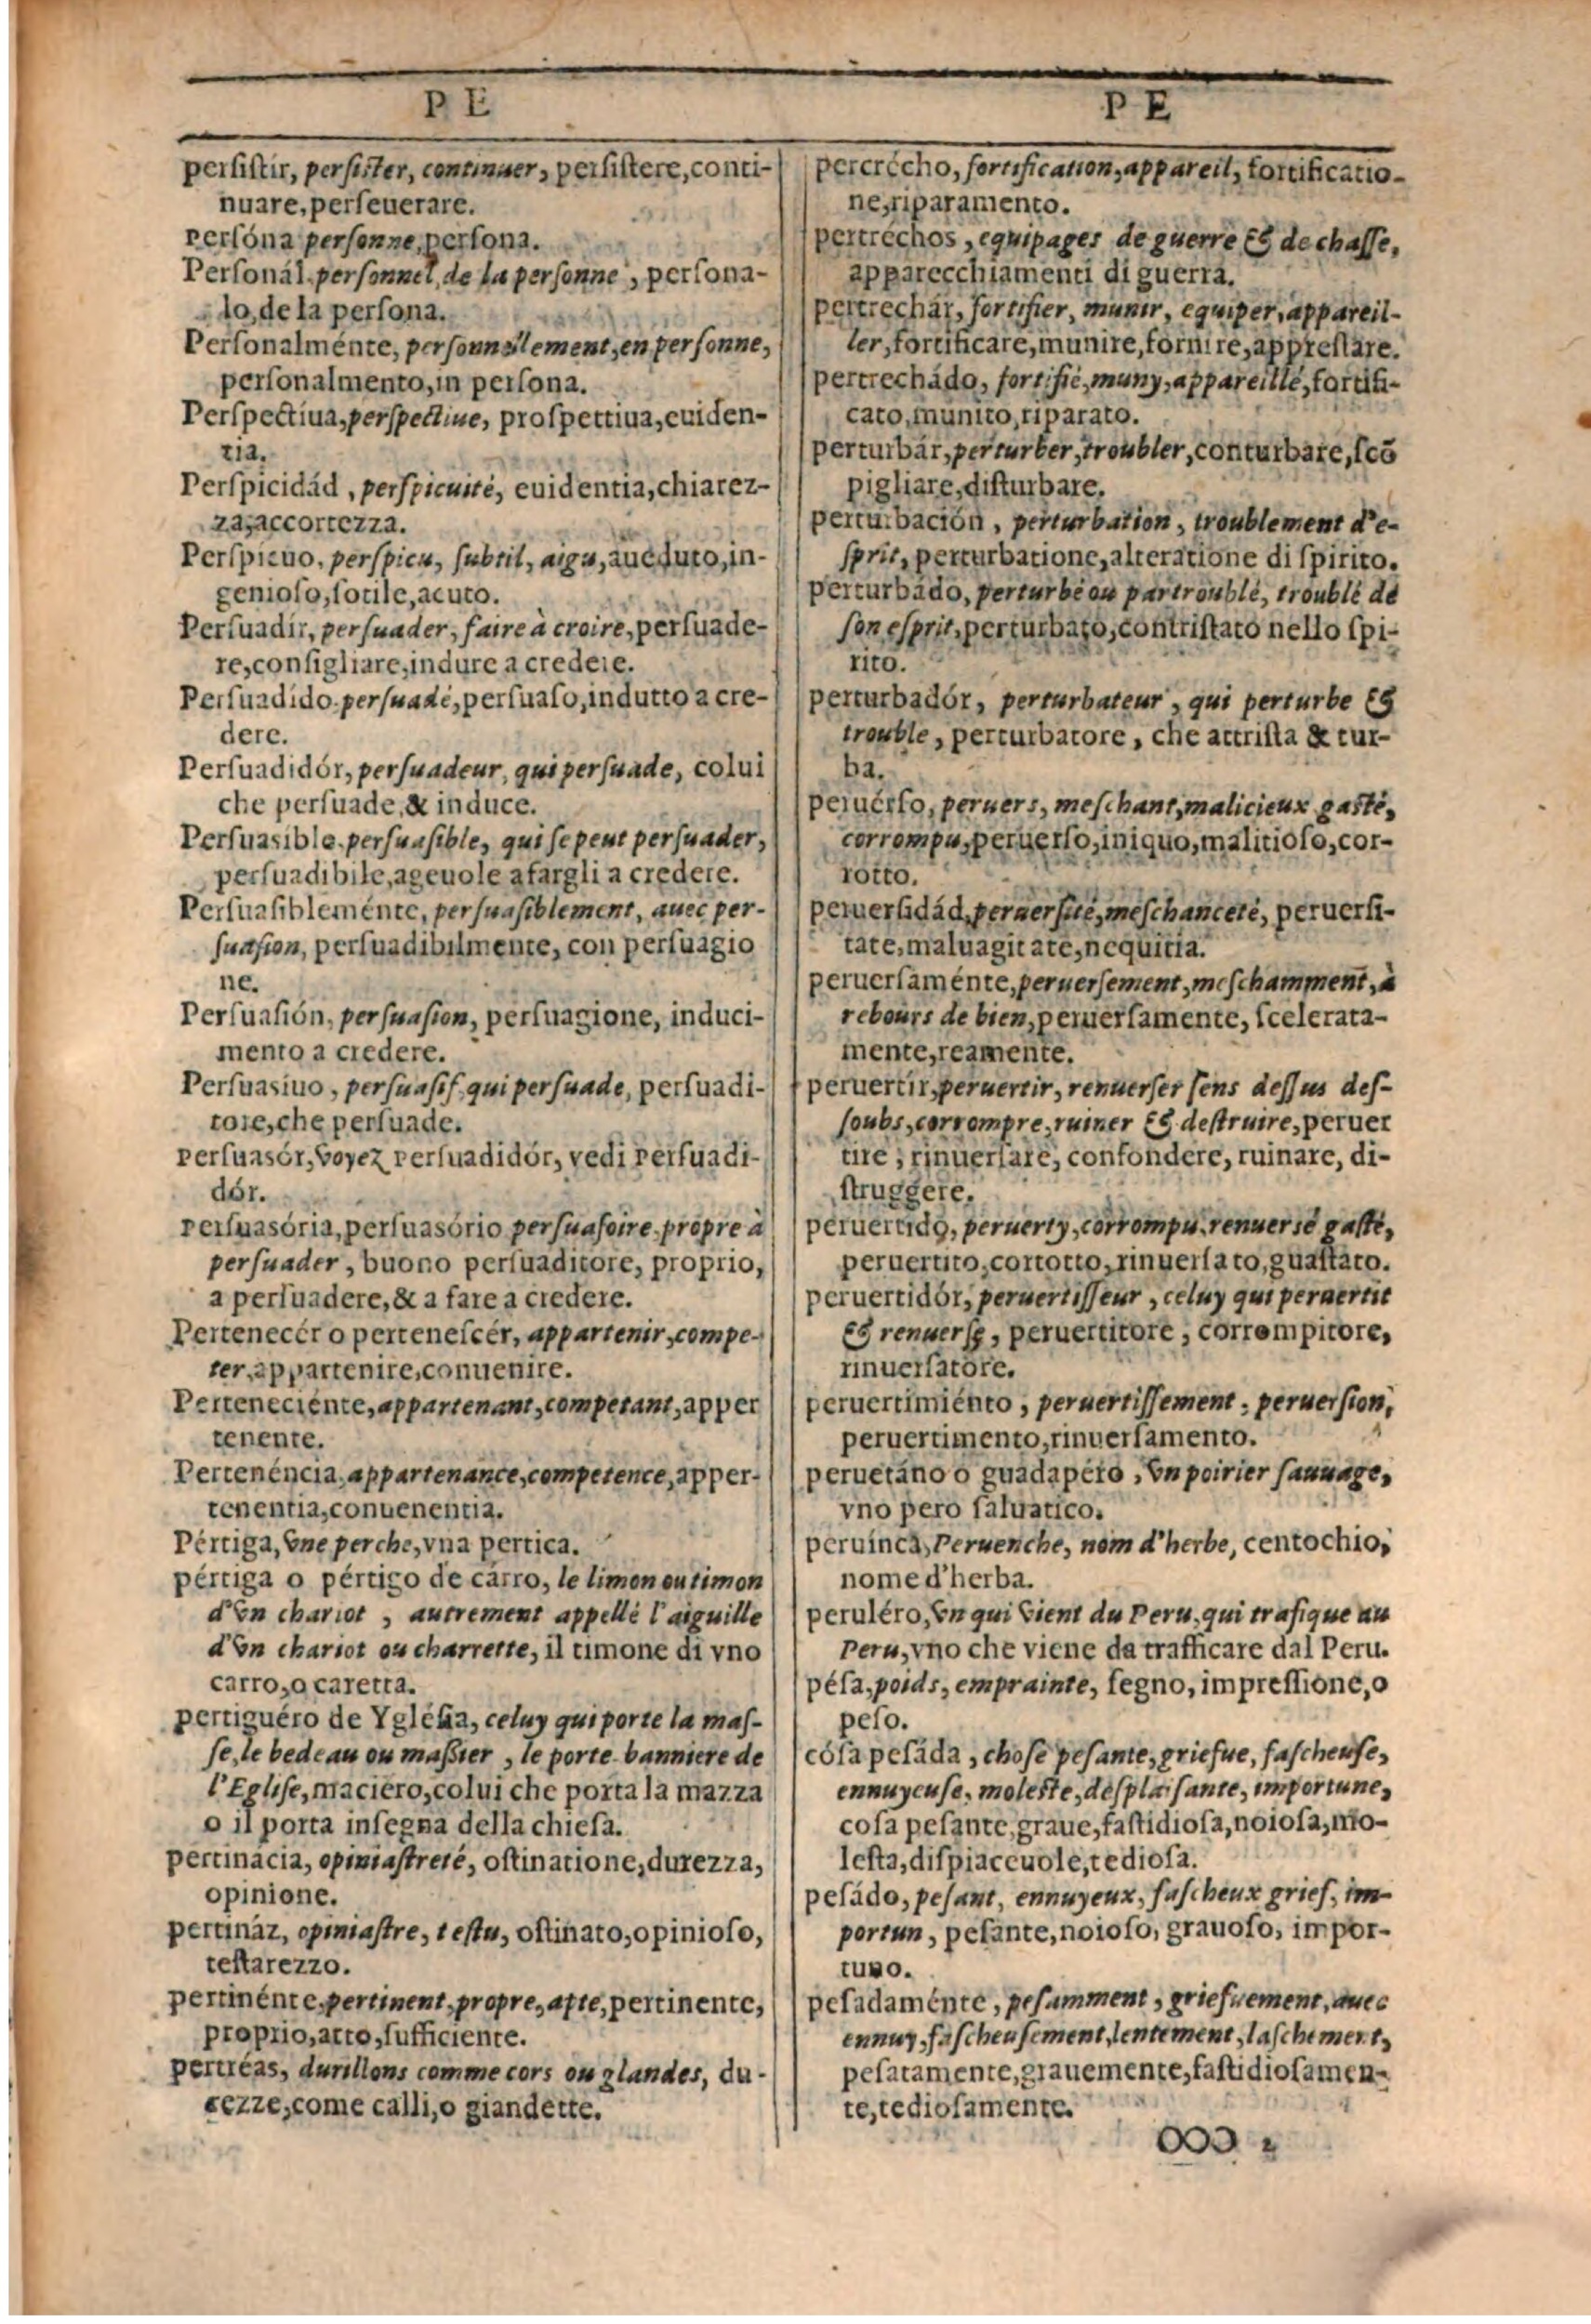 P E
persiſtir, perſiſter, continuer, persiſtere, conti-
nuare, perſeuerare.
Perſóna perſonne, perſona.
Perſonál. perſonnel, de la perſonne, perſona-
lo, de la perſona.
Perſonalménte, perſonnellement, en perſonne,
perſonalmento, in perſona.
Perſpectíua, perſpectiue, proſpettiua, euiden-
tia.
Perſpicidád, perſpicuité, euidentia, chiarez-
za, accortezza.
Perſpicuo, perſpicu, ſubtil, aigu, aueduto, in-
genioſo, ſotile, acuto.
Perſuadír, perſuader, faire à croire, perſuade-
re, conſigliare, indure a credere.
Perſuadído. perſuadé, perſuaſo, indutto a cre-
dere.
Perſuadidór, perſuadeur, qui perſuade, colui
che perſuade, & induce.
Perſuasíble. perſuaſible, qui ſe peut perſuader,
perſuadibile, ageuole a fargli a credere.
Perſuaſibleménte, perſuaſiblement, auec per-
ſuaſion, perſuadibilmente, con perſuagio
ne.
Perſuaſión, perſuaſion, perſuagione, induci-
mento a credere.
Perſuasíuo, perſuaſif, qui perſuade, perſuadi-
tore, che perſuade.
Perſuasór, voyez Perſuadidór, vedi Perſuadi-
dór.
Perſuasória, perſuasório perſuaſoire. propre à
perſuader, buono perſuaditore, proprio,
a perſuadere, & a fare a credere.
Pertenecér o perteneſcér, appartenir, compe-
ter, appartenire, conuenire.
Perteneciénte, appartenant, competant, apper
tenente.
Pertenéncia, appartenance, competence, apper-
tenentia, conuenentia.
Pértiga, vne perche, vna pertica.
pértiga o pértigo de cárro, le limon ou timon
d'vn chariot, autrement appellé l'aiguille
d'vn chariot ou charrette, il timone di vno
carro, o caretta.
pertiguéro de Ygléſia, celuy qui porte la maſ-
ſe, le bedeau ou maßier, le porte banniere de
l'Egliſe, maciero, colui che porta la mazza
o il porta inſegna della chieſa.
pertinácia, opiniaſtreté, oſtinatione, durezza,
opinione.
pertináz, opiniaſtre, teſtu, oſtinato, opinioſo,
teſtarezzo.
pertinénte, pertinent, propre, apte, pertinente,
proprio, atto, ſufficiente.
pertréas, durillons comme cors ou glandes, du-
rezze, come calli, o giandette.
P E
pertrécho, fortification, appareil, fortificatio-
ne, riparamento.
pertréchos, equipages de guerre & de chaſſe,
apparecchiamenti di guerra.
pertrechár, fortifier, munir, equiper, appareil-
ler, fortificare, munire, fornire, appreſtare.
pertrechádo, fortifié, muny, appareillé, fortifi-
cato, munito, riparato.
perturbár, perturber, troubler, conturbare, ſcõ
pigliare, diſturbare.
perturbación, perturbation, troublement d'e-
ſprit, perturbatione, alteratione di ſpirito.
perturbádo, perturbé ou partroublé, troublé de
ſon eſprit, perturbato, contriſtato nello ſpi-
rito.
perturbadór, perturbateur, qui perturbe &
trouble, perturbatore, che attriſta & tur-
ba.
peruérſo, peruers, meſchant, malicieux gaſté,
corrompu, peruerſo, iniquo, malitioſo, cor-
rotto.
peruerſidád, peruerſité, meſchanceté, peruerſi-
tate, maluagitate, nequitia.
peruerſaménte, peruerſement, meſchamment, à
rebours de bien, peruerſamente, ſcelerata-
mente, reamente.
peruertír, peruertir, renuerſer ſens deſſus deſ-
ſoubs, corrompre, ruiner & deſtruire, peruer
tire, rinuerſare, confondere, ruinare, di-
ſtruggere.
peruertido, peruerty, corrompu, renuerſé gaſté,
peruertito, cortotto, rinuerſato, guaſtato.
peruertidór, peruertiſſeur, celuy qui peruertit
& renuerſe, peruertitore, corrompitore,
rinuerſatore.
peruertimiénto, peruertiſſement, peruerſion,
peruertimento, rinuerſamento.
peruetáno o guadapéro, vn poirier ſauuage,
vno pero ſaluatico.
peruínca, Peruenche, nom d'herbe, centochio,
nome d'herba.
peruléro, vn qui vient du Peru, qui trafique au
Peru, vno che viene da trafficare dal Peru.
péſa, poids, emprainte, ſegno, impreſſione, o
peſo.
cóſa peſáda, choſe peſante, griefue, faſcheuſe,
ennuyeuſe, moleſte, deſplaiſante, importune,
coſa peſante, graue, faſtidioſa, noioſa, mo-
leſta, diſpiaceuole, tedioſa.
peſádo, peſant, ennuyeux, faſcheux grief, im-
portun, peſante, noioſo, grauoſo, impor-
tuno.
peſadaménte, peſamment, griefuement, auec
ennuy, faſcheuſement, lentement, laſchement,
peſatamente, grauemente, faſtidioſamen-
te, tedioſamente.
OOO 2